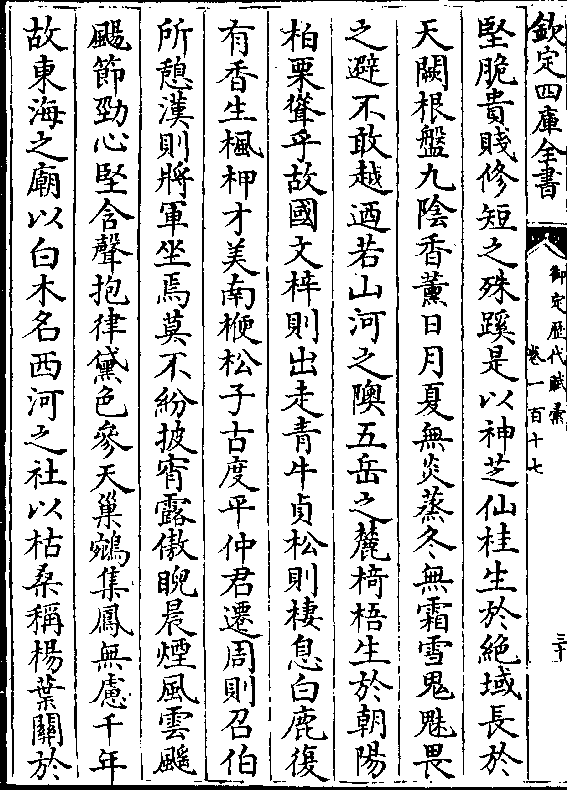 欽定四庫全書
御定歷代賦彙
卷一百十七
三十
堅脆貴賤修短之殊蹊是以神芝仙桂生於絶域長於
天闕根盤九陰香薰日月夏無炎蒸冬無霜雪鬼魅畏
之避不敢越迺若山河之隩五岳之麓椅梧生於朝陽
柏栗聳乎故國文梓則出走青牛貞松則棲息白鹿復
有香生楓柙才美南楩松子古度平仲君遷周則召伯
所憩漢則將軍坐焉莫不紛披宵露傲睨晨煙風雲飈
颺節勁心堅含聲抱律黛色參天巢鵷集鳳無慮千年
故東海之廟以白木名西河之社以枯桑稱楊葉關於